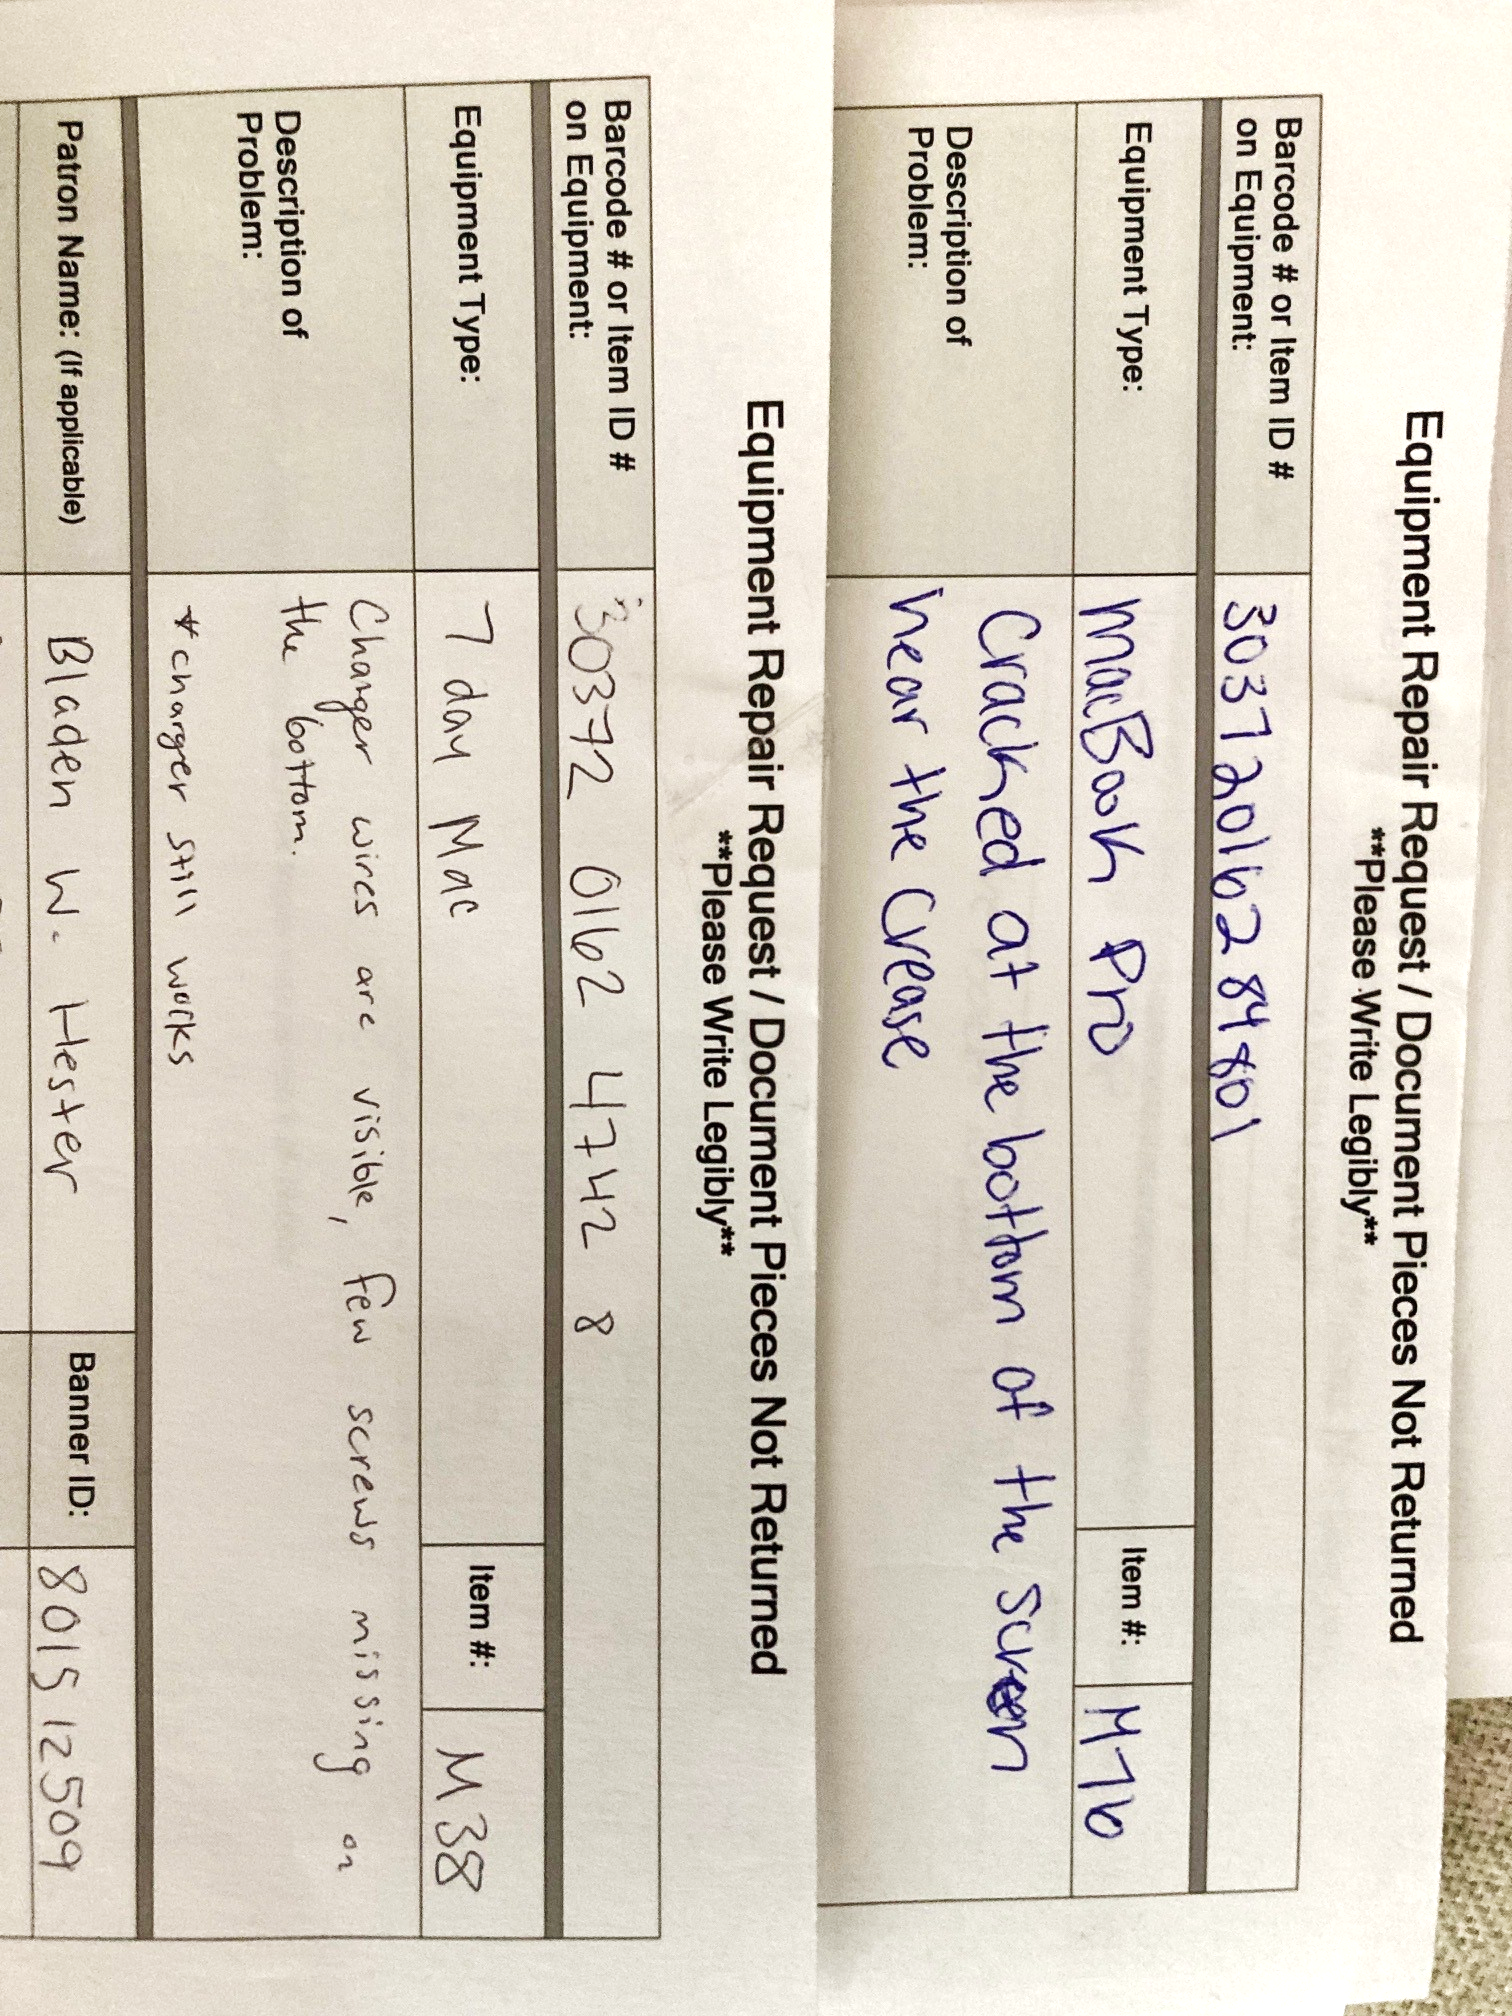 Equipment Repair Request / Document Pieces Not Returned
**Please Write Legibly**
Barcode # or Item ID #
on Equipment:
30372016284801
Equipment Type:
MacBook Pro
Item #:
M76
Description of
Problem:
Cracked at the bottom of the screen
near the crease
Equipment Repair Request / Document Pieces Not Returned
**Please Write Legibly**
Barcode # or Item ID #
on Equipment:
30372 0162 4742 8
Equipment Type:
7 day Mac
Item #:
M38
Description of
Problem:
Charger wires are visible, few screws missing on
the bottom.
* charger still works
Patron Name: (If applicable)
Bladen W. Hester
Banner ID:
801512509